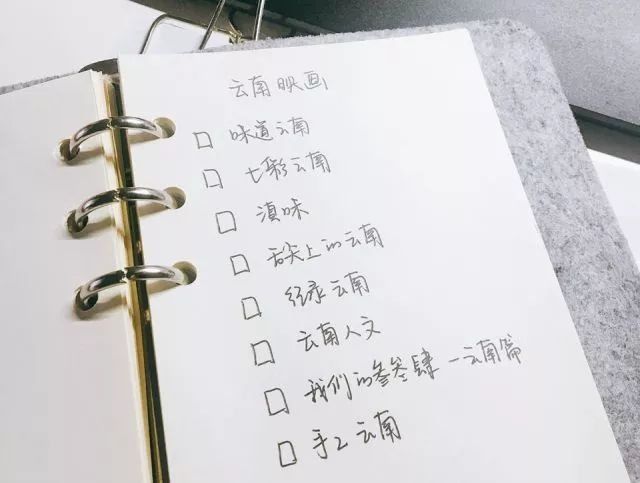 云南映画
味道云南
七彩云南
滇味
舌尖上的云南
云南
云南人文
我们的叁叁肆—云南篇
手工云南